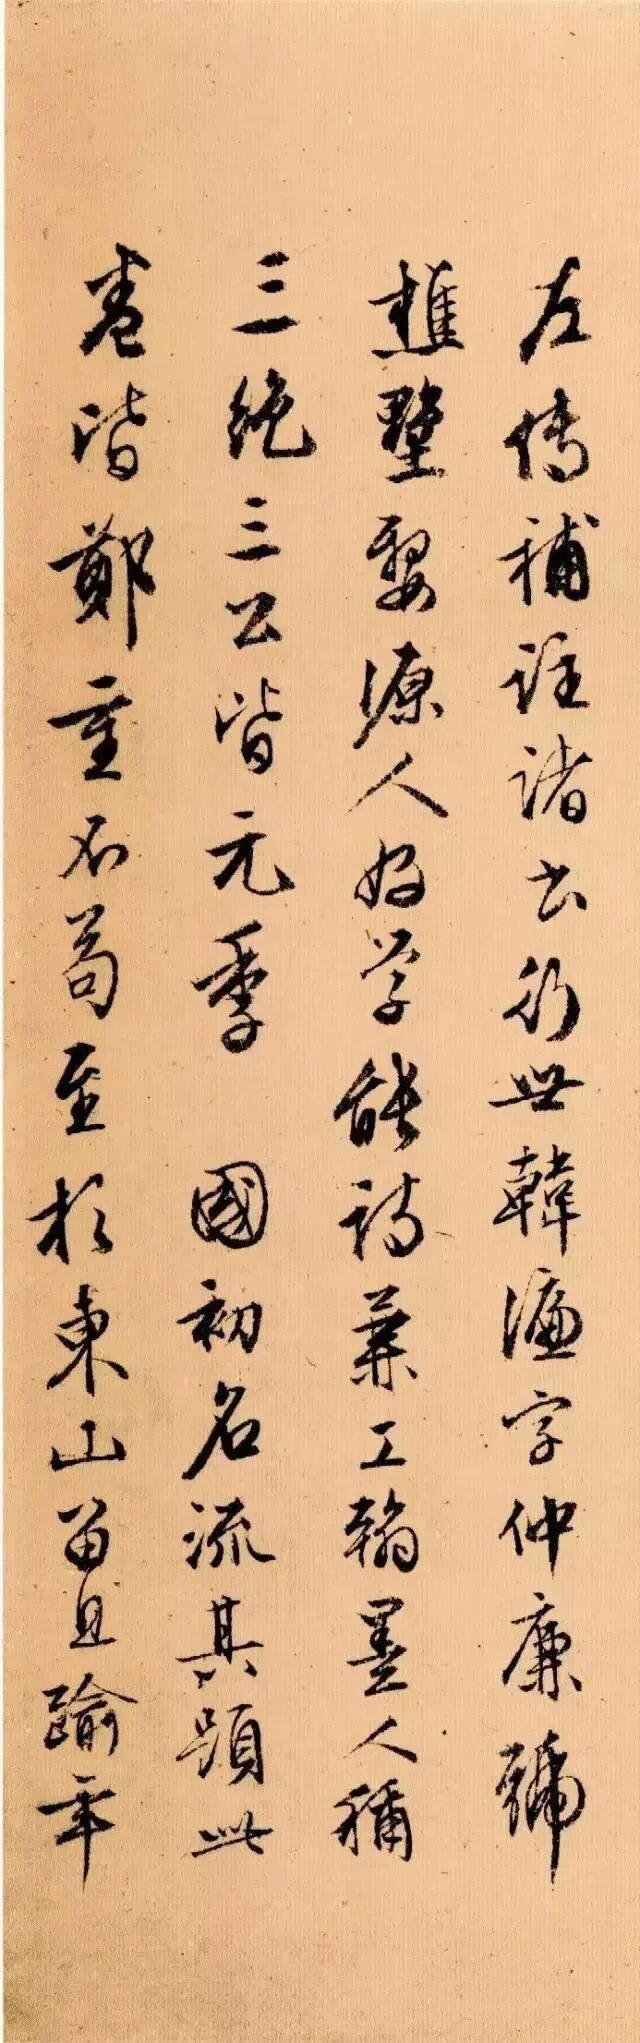 左傳補註諸書行世韓濂字仲廉號
樵墅婺源人好學能詩兼工翰墨人稱
三絕三公皆元季 國初名流其題此
卷皆鄭重不苟至於東山留且踰年